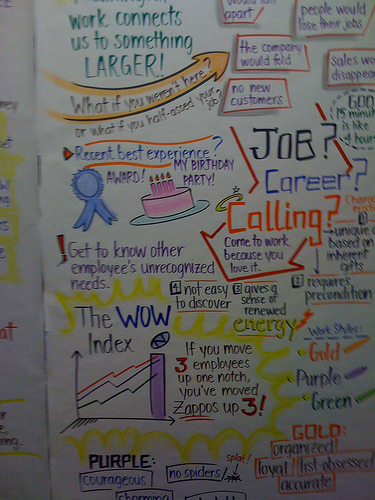 work connects
us to something
LARGER!
apart
people would
lose their jobs
the company
would fold
sales wo
disappea
no new
customers
What if you weren't here?
or what if you half-assed your
job?
Recent best experience?
AWARD!
MY BIRTHDAY
PARTY!
JOB?
Career?
Calling?
15 minut
is like
4 hours
Come to work
because you
love it.
unique
based on
inherent
gifts
requires
precondition
! Get to know other
employee's unrecognized
needs.
not easy
to discover
gives a
sense of
renewed
energy
The WOW
Index
If you move
3 employees
up one notch,
you've moved
Zappos up 3!
Work Styles:
• Gold
• Purple
• Green
GOLD:
organized
loyal list-obsessed
accurate
PURPLE:
courageous
charming
no spiders
splat!